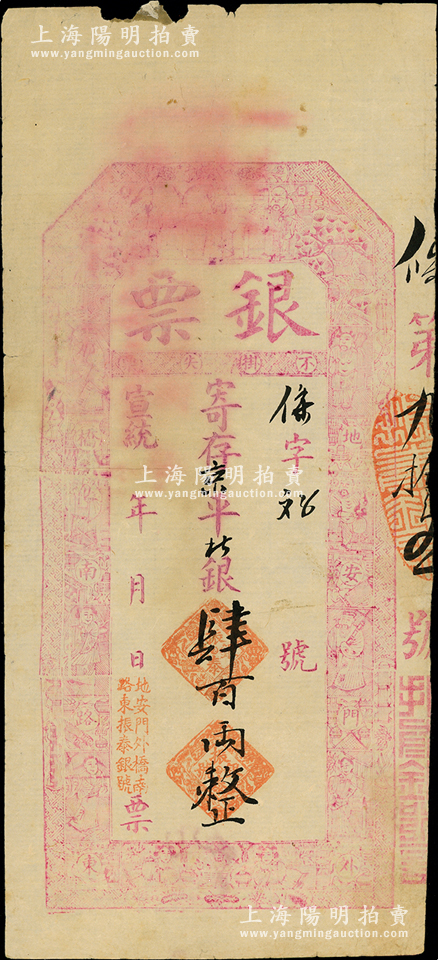 上海陽明拍賣
www.yangmingauction.com
銀票
不掛失
地安門外
橋南路東
條字
號
寄存京平
銀肆百兩整
宣統 年 月 日
票
地安門外橋南
路東振泰銀號
第
九拾
號
上海陽明拍賣
www.yangmingauction.com
上海陽明拍賣
www.yangmingauction.com